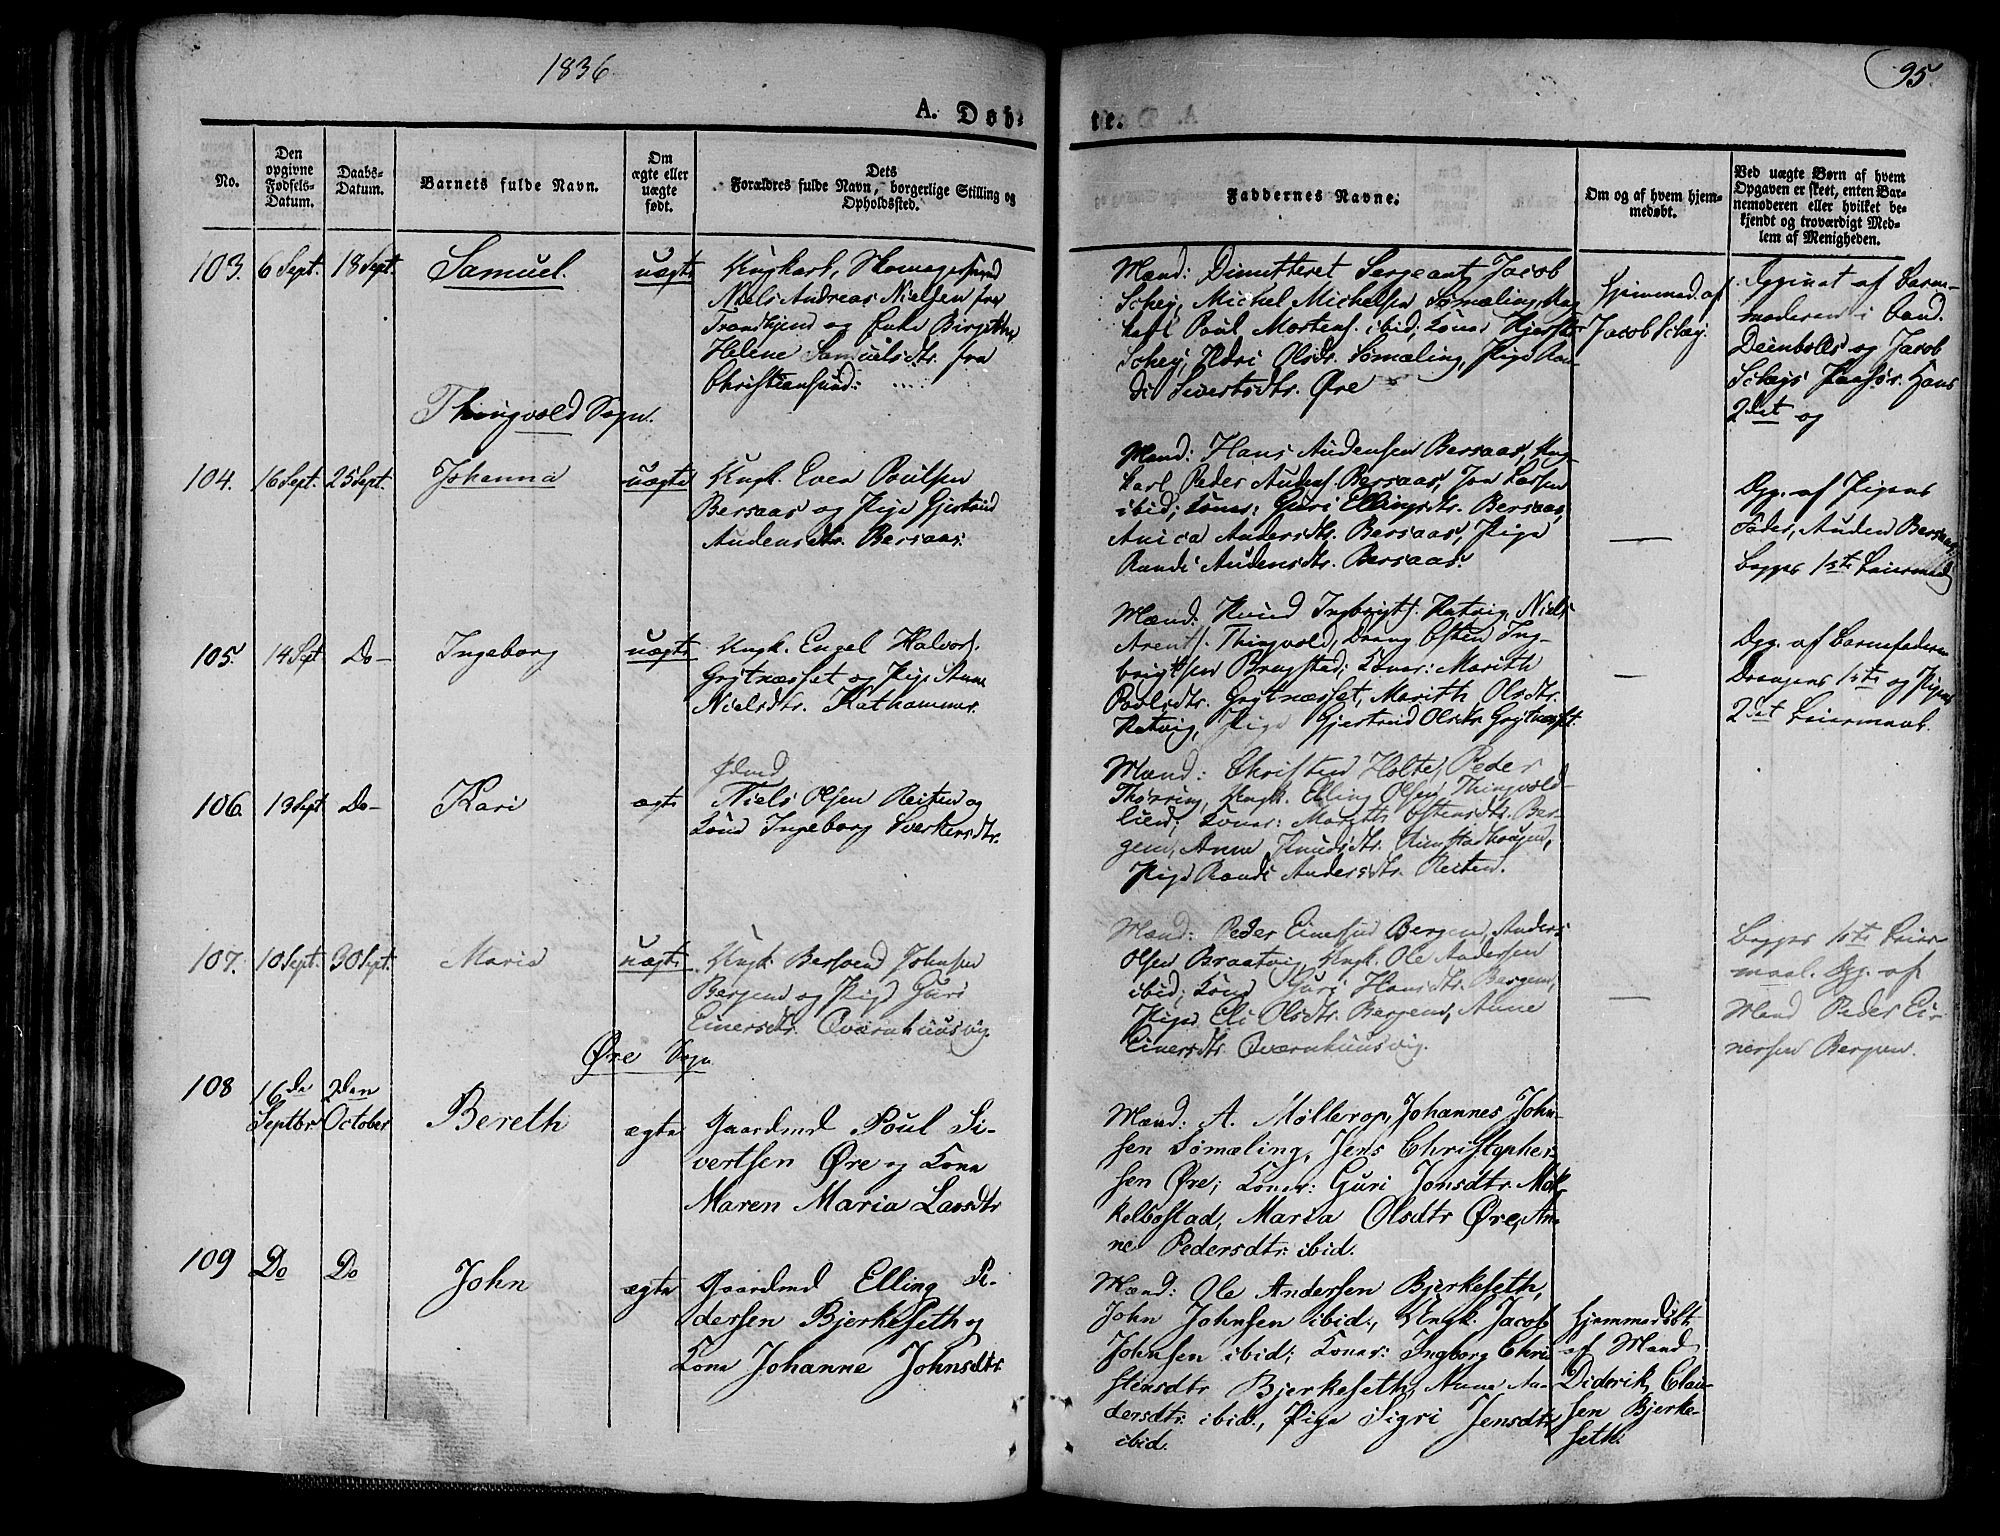 1836
95.
A. Døb-
te.
No.
Den
opgivne
Fødsels-
Datum.
Daabs-
Datum.
Barnets fulde Navn.
Om
ægte eller
uægte
født.
Dets
Forældres fulde Navn, borgerlige Stilling og
Opholdssted.
Faddernes Navne.
Om og af hvem hjem-
medøbt.
Ved uægte Børn af hvem
Opgaven er skeet, enten Bar-
nemoderen eller hvilket be-
kjendt og troværdigt Med-
lem af Menigheden.
103. 6 Sept. 18 Sept. Samuel. uægte
Ungkarl, Skomagersvend
Niels Andreas Nielsen fra
Trondhjem og Enke Birgithe
Helene Samuelsdtr. fra
Christiansund.
Mænd: Dimitteret Sergeant Jacob
Schey, Michel Michelsen Sømæling, Ung-
karl Poul Mortens. ibid; Koner
Schey, Ildri Olsdr. Sømæling, Pige Ran-
di Sivertsdtr. Øre
Hjemmed. af
Jacob Schey.
Opgivet af Barne-
moderen i Cand.
Deinbolls og Jacob
Scheys Paahør. Hans
2det og
Thingvold Sogn.
104. 16 Sept. 25 Sept. Johanna uægte
Ungk. Even Poulsen
Bersaas og Pige Gjertrud
Audensdtr. Bersaas.
Mænd: Hans Audensen Bersaas, Ung-
karl Peder Audens. Bersaas, Jon Larsen
ibid; Koner: Guri Ellingsdtr. Bersaas,
Anica Andersdtr. Bersaas, Pige
Randi Audensdtr. Bersaas.
—
Opg. af Pigens
Fader, Auden Bersaas,
begges 1ste Leiermaal
105. 14 Sept Do— Ingeborg uægte
Ungk. Engel Halvors.
Grytnæsset og Pige Anne
Nielsdtr. Kathammer.
Mænd: Knud Ingbrigts. Hatvig, Niels
Arents. Thingvold, Dreng Østen Ing-
brigtsen Brugstad; Koner: Marith
Povlsdtr. Grytnæsset, Marith Olsdtr.
Hatvig, Pige Gjertrud Olsdtr. Grytnæsset.
—
Opg. af Barnefaderen
Drengens 1ste og Pigens
2det Leiermaal.
106. 13 Sept Do— Kari ægte
Niels Olsen Reiten og
Kone Ingeborg Sverkersdtr.
Mænd: Christen Holte, Peder
Thørring, Ungk. Elling Olsen Thingvold-
lien; Koner: Marith Østensdtr. Ber-
gem, Anne Knudsdtr. Aunstadhaugen,
Pige Randi Andersdtr. Reiten.
107. 10 Sept. 30 Sept. Marie uægte
Ungk. Bersvend Johnsen
Bergem og Pige Guri
Einersdtr. Qværnhuusvig.
Mænd: Peder Einersen Bergem, Anders
Olsen Braatvig, Ungk. Ole Andersen
ibid; Kone Guri Hansdtr. Bergem,
Pige Eli Olsdtr. Bergem, Anne
Einersdtr. Qværnhuusvig.
—
begges 1ste Leier-
maal. Opg. af
Mand Peder Ei-
nersen Bergem.
Øre Sogn
108 16de
Septbr 2den
October Bereth ægte
Gaardmd Poul Si-
vertsen Øre og Kone
Maren Maria Larsdtr
Mænd: A. Møllerop, Johannes John-
sen Sømæling, Jens Christopher-
sen Øre; Koner: Guri Jonsdtr. Mok-
kelbostad, Maria Olsdtr Øre, An-
ne Pedersdtr. ibid.
109 Do Do John ægte
Gaardmd Elling Pe-
dersen Bjerkeseth og
Kone Johanne Johnsdtr
Mænd: Ole Andersen Bjerkeseth,
John Johnsen ibid., Ungk. Jacob
Johnsen ibid; Koner: Ingborg Chri-
stensdtr Bjerkeseth, Anne An-
dersdtr. ibid., Pige Sigri Jensdtr
ibid.
Hjemmedøbt
af Mand
Diderik Clau-
sen Bjerke-
seth.